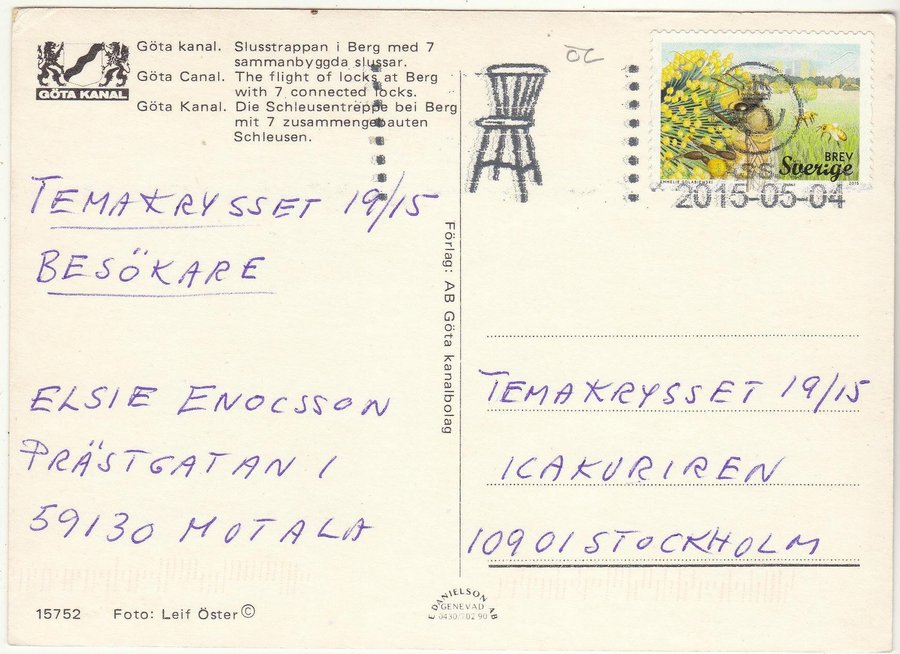 GÖTA KANAL
Göta kanal. Slusstrappan i Berg med 7
sammanbyggda slussar.
Göta Canal. The flight of locks at Berg
with 7 connected locks.
Göta Kanal. Die Schleusentreppe bei Berg
mit 7 zusammengebauten
Schleusen.
TEMAKRYSSET 19/15
BESÖKARE
ELSIE ENOCSSON
PRÄSTGATAN 1
59130 MOTALA
15752 Foto: Leif Öster ©
Förlag: AB Göta kanalbolag
E. DANIELSON AB
GENEVAD
0430/702 90
BREV
Sverige
2015
2015-05-04
TEMAKRYSSET 19/15
ICAKURIREN
10901 STOCKHOLM